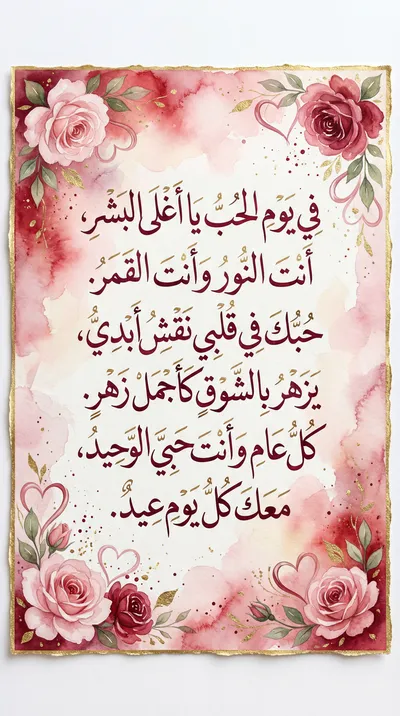 في يَوْم الحُبُّ يَا أَغْلَى البَشَرِ،
أَنْت النُّورُ وَأَنْت القَمَرُ.
حُبُّكَ فِي قُلْبِي نَقْشُ أَبْدِيُّ،
يَزْهَرُ بالشَّوْقِ كَأَجْمَلْ زَهْرٍ.
كُلُّ عَام وَأَنْت حَبِيَّ الوَحِيدُ،
مَعَكَ كُلُّ يَوْمٍ عِيدٌ.